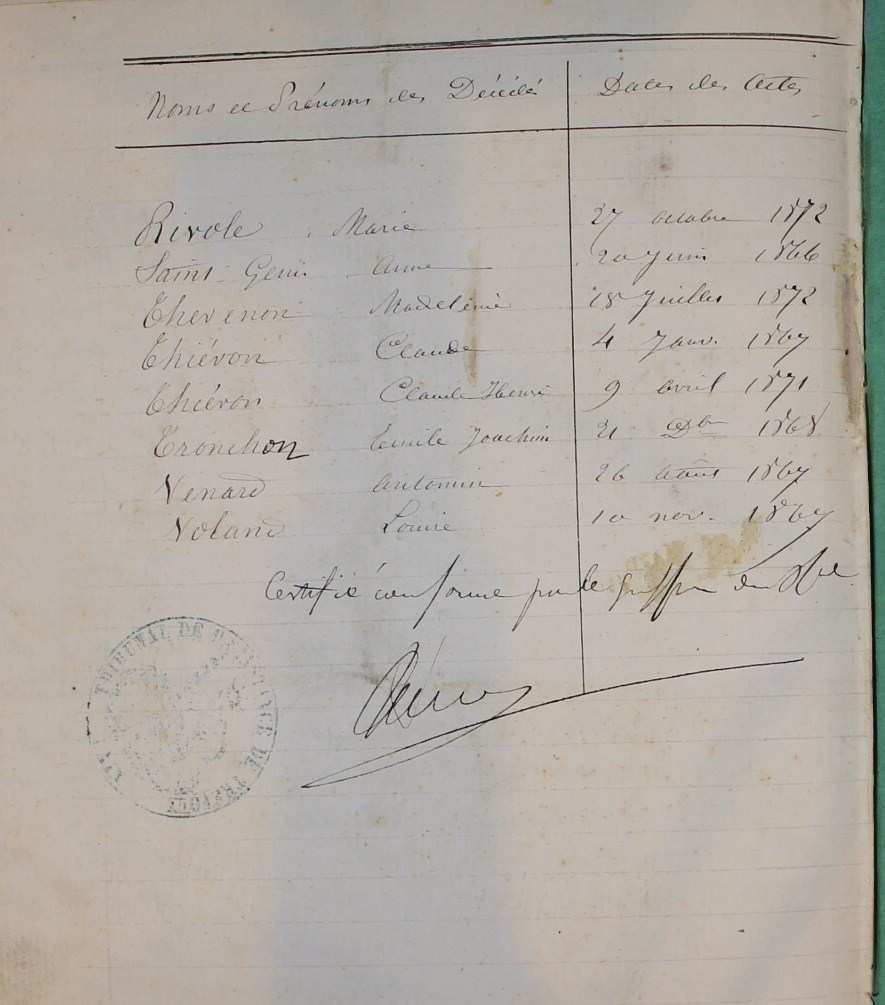 Noms et Prénoms des Décédés Dates des Actes
Rivole Marie 27 octobre 1872
Saint-Genis Anne 20 Juin 1866
Thevenon Madeleine 18 Juillet 1872
Thiévon Claude 4 Janv. 1867
Thiévon Claude Henri 9 avril 1871
Tronchon Emile Joachim 21 Dbre 1868
Venard Antonin 26 août 1867
Volard Louise 10 nov. 1867
Certifié conforme par le greffier du
TRIBUNAL DE 1ERE INSTANCE DE TREVOUX